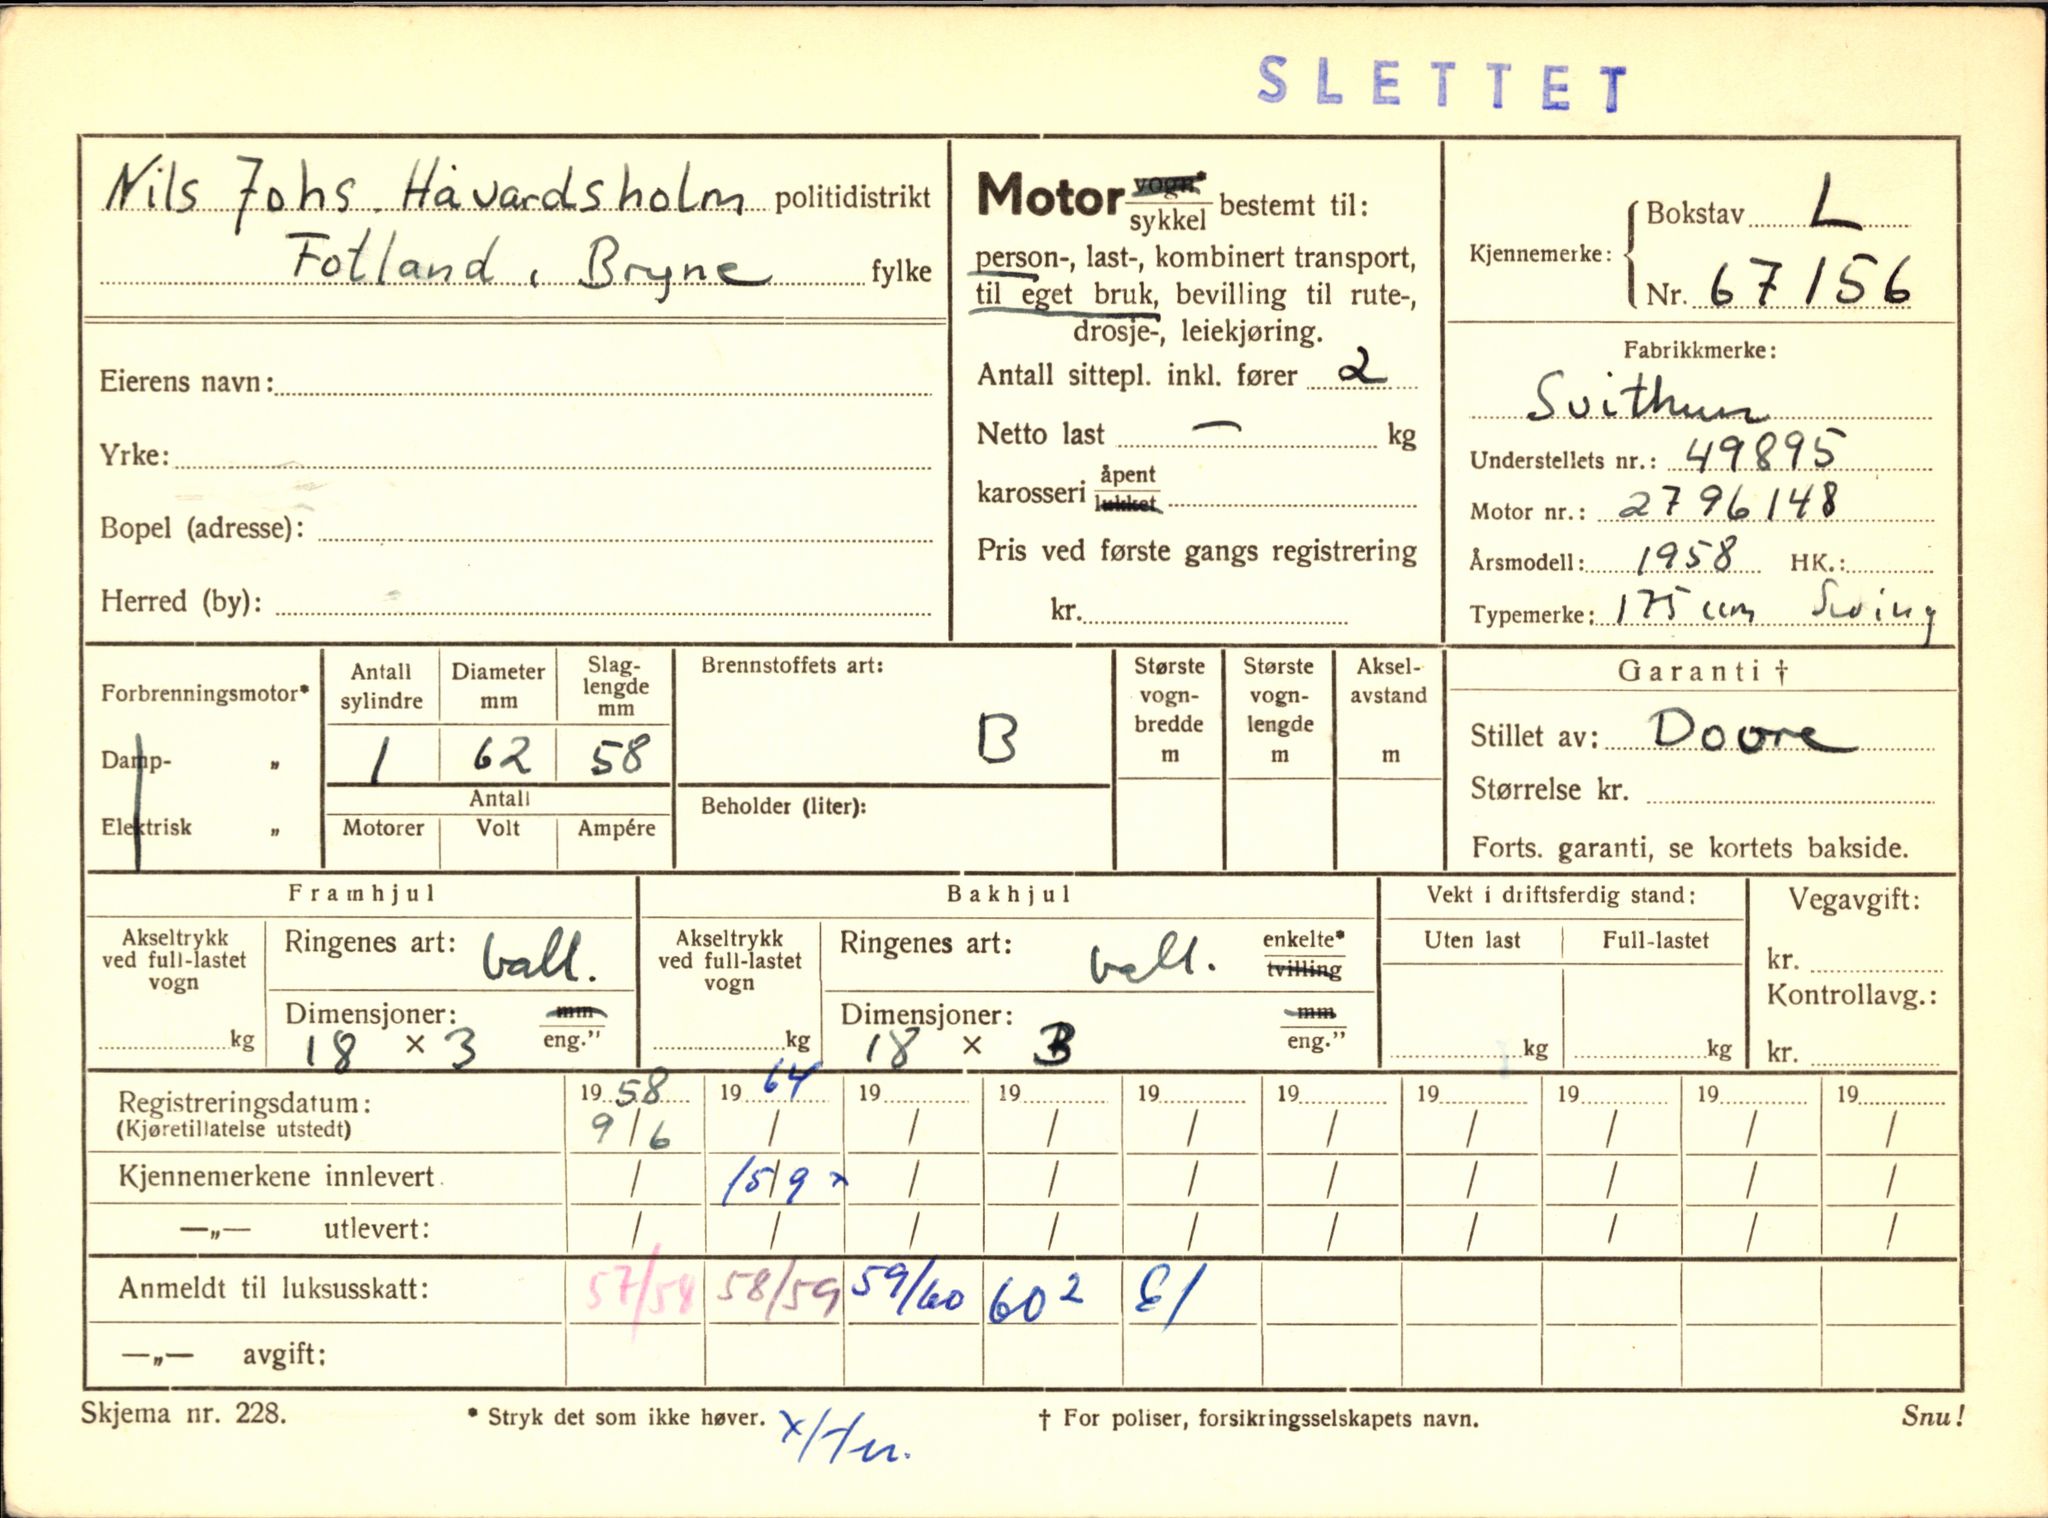 SLETTET
Nils Johs. Håvardsholm politidistrikt
Fotland, Bryne fylke
Eierens navn:
Yrke:
Bopel (adresse):
Herred (by):
Motor vogn* sykkel bestemt til:
person-, last-, kombinert transport,
til eget bruk, bevilling til rute-,
drosje-, leiekjøring.
Antall sittepl. inkl. fører 2
Netto last — kg
karosseri åpent lukket
Pris ved første gangs registrering
kr.
Kjennemerke: Bokstav L
Nr. 67156
Fabrikkmerke:
Svithun
Understellets nr.: 49895
Motor nr.: 2796148
Årsmodell: 1958 HK.:
Typemerke: 175 ccm Swing
Forbrenningsmotor*
Damp- „
Elektrisk „
Antall sylindre
Diameter mm
Slag-
lengde
mm
1 62 58
Antall
Motorer Volt Ampére
Brennstoffets art:
B
Beholder (liter):
Største
vogn-
bredde
m
Største
vogn-
lengde
m
Aksel-
avstand
m
Garanti †
Stillet av: Dovre
Størrelse kr.
Forts. garanti, se kortets bakside.
Framhjul
Akseltrykk
ved full-lastet
vogn
kg
Ringenes art: ball.
Dimensjoner: mm
18 × 3 eng.”
Bakhjul
Akseltrykk
ved full-lastet
vogn
kg
Ringenes art: ball. enkelte*
tvilling
Dimensjoner: mm
18 × 3 eng.”
Vekt i driftsferdig stand:
Uten last Full-lastet
kg kg
Vegavgift:
kr.
Kontrollavg.:
kr.
Registreringsdatum: 19 58 19 64 19 19 19 19 19 19 19 19
(Kjøretillatelse utstedt) 9/6 / / / / / / / / /
Kjennemerkene innlevert / 15/9 x / / / / / / / /
—„— utlevert: / / / / / / / / / /
Anmeldt til luksusskatt: 57/58 58/59 59/60 60²
—„— avgift:
Skjema nr. 228. * Stryk det som ikke høver. † For poliser, forsikringsselskapets navn. Snu!